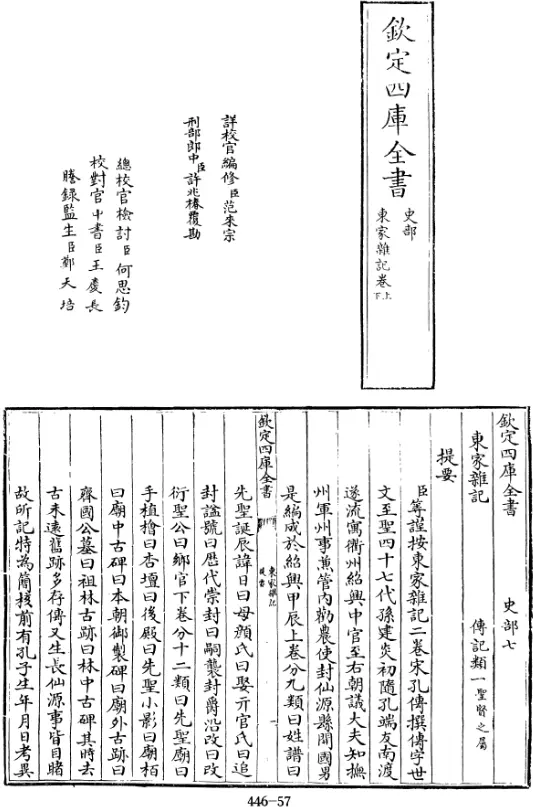 欽定四庫全書
史部
東家雜記卷上下
詳校官編修臣范來宗
刑部郎中臣許兆椿覆勘
總校官檢討臣何思鈞
校對官中書臣王慶長
謄錄監生臣鄭天培
欽定四庫全書 史部七
東家雜記 傳記類一聖賢之屬
提要
臣等謹按東家雜記二卷宋孔傳撰傳字世
文至聖四十七代孫建炎初隨孔端友南渡
遂流寓衢州紹興中官至右朝議大夫知撫
州軍州事兼管內勸農使封仙源縣開國男
是編成於紹興甲辰上卷分九類曰姓譜曰
欽定四庫全書 東家雜記 提要
先聖誕辰諱日曰母顏氏曰娶亓官氏曰追
封諡號曰歷代崇封曰嗣襲封爵沿改曰改
衍聖公曰鄉官下卷分十二類曰先聖廟曰
手植檜曰杏壇曰後殿曰先聖小影曰廟栢
曰廟中古碑曰本朝御製碑曰廟外古跡曰
齊國公墓曰祖林古跡曰林中古碑其時去
古未遠舊跡多存傳又生長仙源事皆目睹
故所記特為簡核前有孔子生年月日考異
446-57